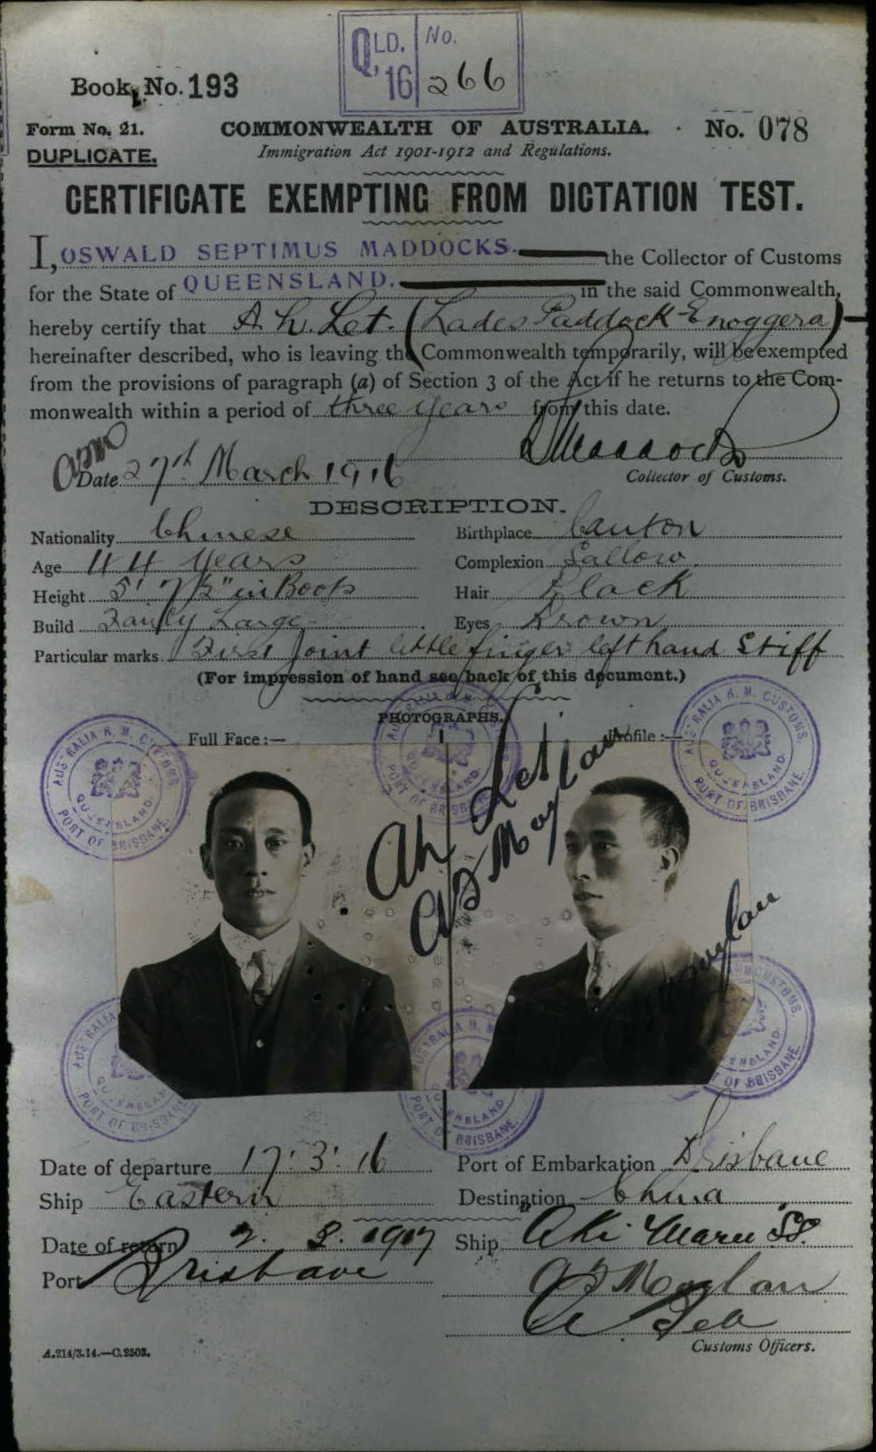 QLD. No.
16 266
Book No. 193
Form No. 21. COMMONWEALTH OF AUSTRALIA. No. 078
DUPLICATE. Immigration Act 1901-1912 and Regulations.
CERTIFICATE EXEMPTING FROM DICTATION TEST.
I, OSWALD SEPTIMUS MADDOCKS. the Collector of Customs
for the State of QUEENSLAND. in the said Commonwealth,
hereby certify that Ah Let. (Lades Paddock Enoggera)
hereinafter described, who is leaving the Commonwealth temporarily, will be exempted
from the provisions of paragraph (a) of Section 3 of the Act if he returns to the Com-
monwealth within a period of three years from this date.
Date 27th March 1916 Collector of Customs.
DESCRIPTION.
Nationality Chinese Birthplace Canton
Age 44 years Complexion Sallow
Height 5' 7½" in Boots Hair Black
Build Fairly Large Eyes Brown
Particular marks First joint little finger left hand stiff
(For impression of hand see back of this document.)
PHOTOGRAPHS.
Full Face:— Profile:—
AUSTRALIA H. M. CUSTOMS. QUEENSLAND PORT OF BRISBANE
Ah Let
Moylan
Date of departure 17.3.16 Port of Embarkation Brisbane
Ship Eastern Destination China
Date of return 2. 8. 1917 Ship Aki Maru SS.
Port Brisbane
Moylan
Customs Officers.
A.214/3.14.—C.2503.